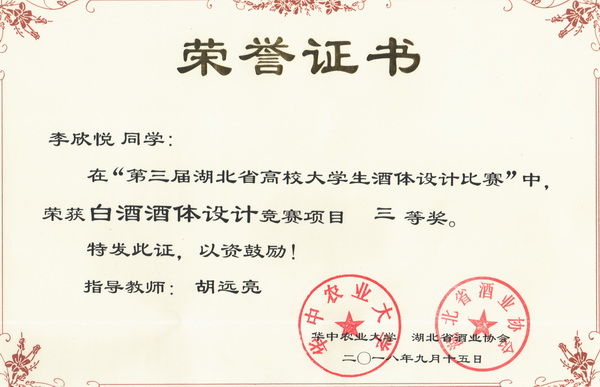 荣誉证书
李欣悦 同学：
在“第三届湖北省高校大学生酒体设计比赛”中，
荣获白酒酒体设计竞赛项目 三 等奖。
特发此证，以资鼓励！
指导教师： 胡远亮
华中农业大学
湖北省酒业协会
华中农业大学 湖北省酒业协会
二〇一八年九月十五日